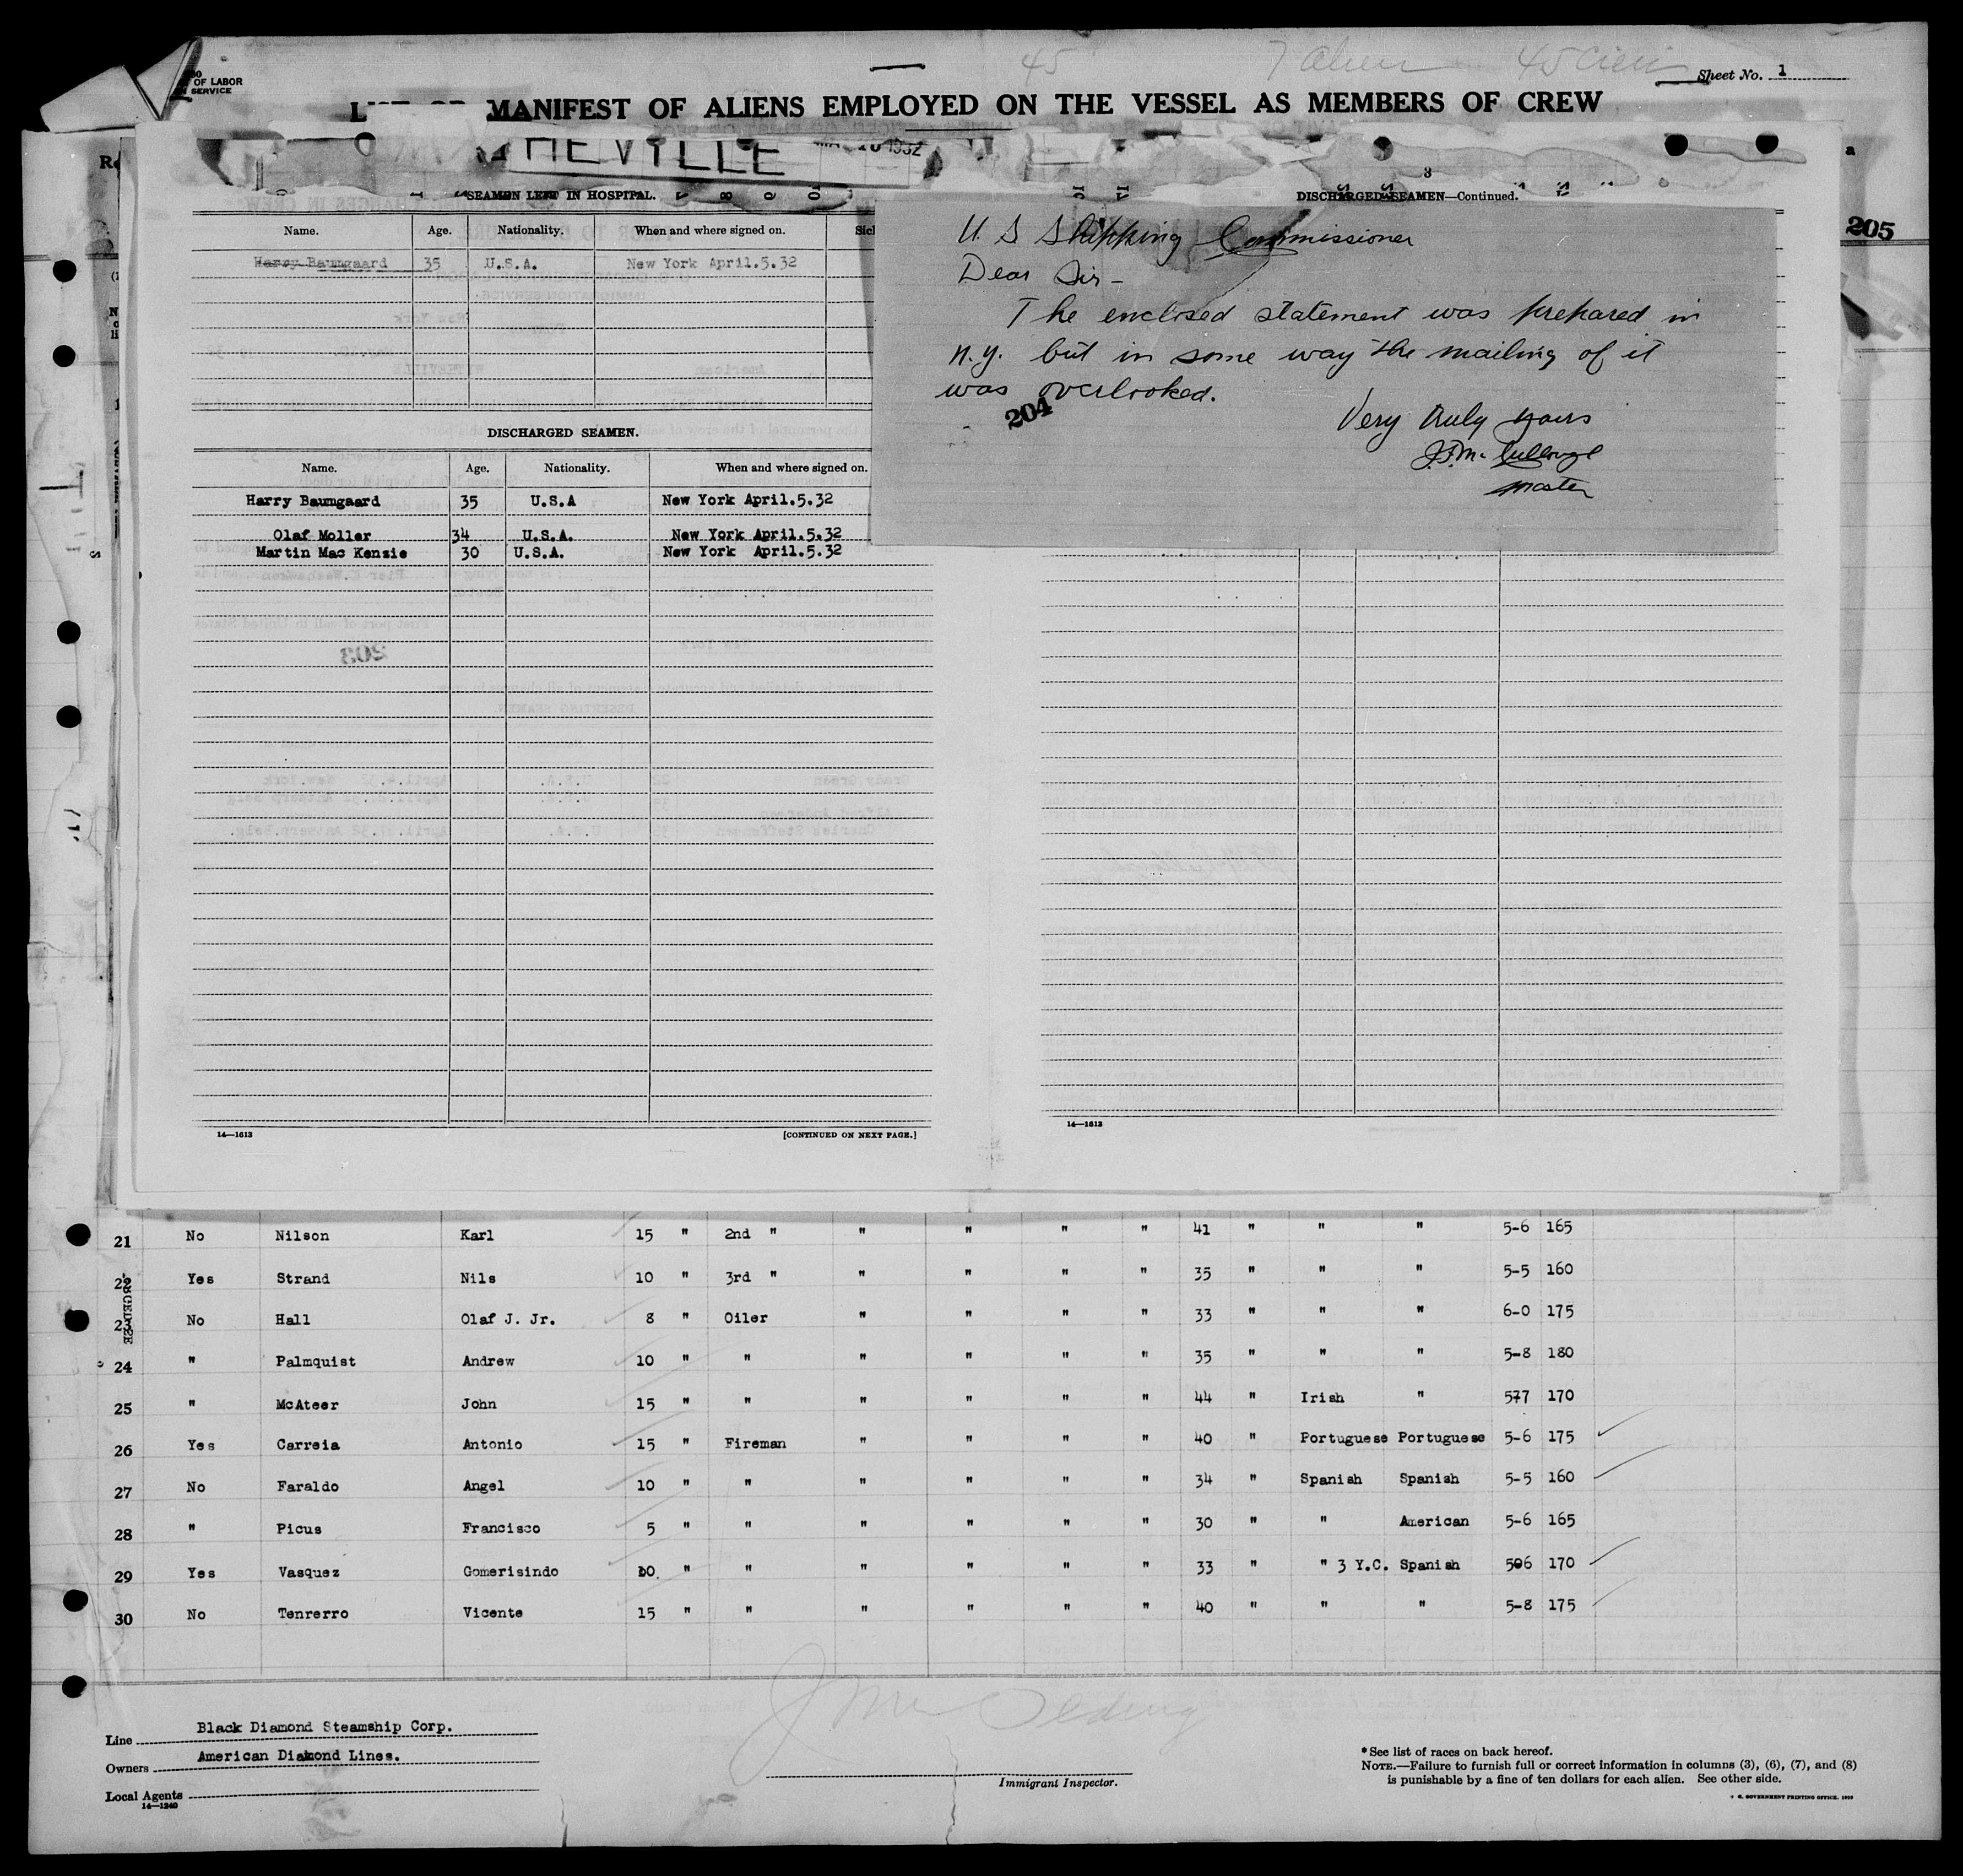 45 7 Alien 45 Crew
OF LABOR
SERVICE
Sheet No. 1
MANIFEST OF ALIENS EMPLOYED ON THE VESSEL AS MEMBERS OF CREW
HEVILLE 1932
3
SEAMEN LEFT IN HOSPITAL.
DISCHARGED SEAMEN—Continued.
Name. Age. Nationality. When and where signed on.
Harry Baumgaard 35 U.S.A. New York April.5.32
205
U. S Shipping Commissioner
Dear Sir-
The enclosed statement was prepared in
N.Y. but in some way the mailing of it
was overlooked.
204
Very truly yours
J.F. McCullough
Master
DISCHARGED SEAMEN.
Name. Age. Nationality. When and where signed on.
Harry Baumgaard 35 U.S.A New York April.5.32
Olaf Moller 34 U.S.A. New York April.5.32
Martin Mac Kenzie 30 U.S.A. New York April.5.32
203
14—1613 [CONTINUED ON NEXT PAGE.]
14—1613
21 No Nilson Karl 15 " 2nd " " " " " 41 " " " 5-6 165
22 Yes Strand Nils 10 " 3rd " " " " " 35 " " " 5-5 160
23 No Hall Olaf J. Jr. 8 " Oiler " " " " 33 " " " 6-0 175
24 " Palmquist Andrew 10 " " " " " " 35 " " " 5-8 180
25 " McAteer John 15 " " " " " " 44 " Irish " 577 170
26 Yes Carreia Antonio 15 " Fireman " " " " 40 " Portuguese Portuguese 5-6 175
27 No Faraldo Angel 10 " " " " " " 34 " Spanish Spanish 5-5 160
28 " Picus Francisco 5 " " " " " " 30 " " American 5-6 165
29 Yes Vasquez Gomerisindo 10 " " " " " " 33 " " 3 Y.C. Spanish 506 170
30 No Tenrerro Vicente 15 " " " " " " 40 " " " 5-8 175
Line Black Diamond Steamship Corp.
Owners American Diamond Lines.
Local Agents
14—1240
Immigrant Inspector.
* See list of races on back hereof.
NOTE.—Failure to furnish full or correct information in columns (3), (6), (7), and (8)
is punishable by a fine of ten dollars for each alien. See other side.
GOVERNMENT PRINTING OFFICE.